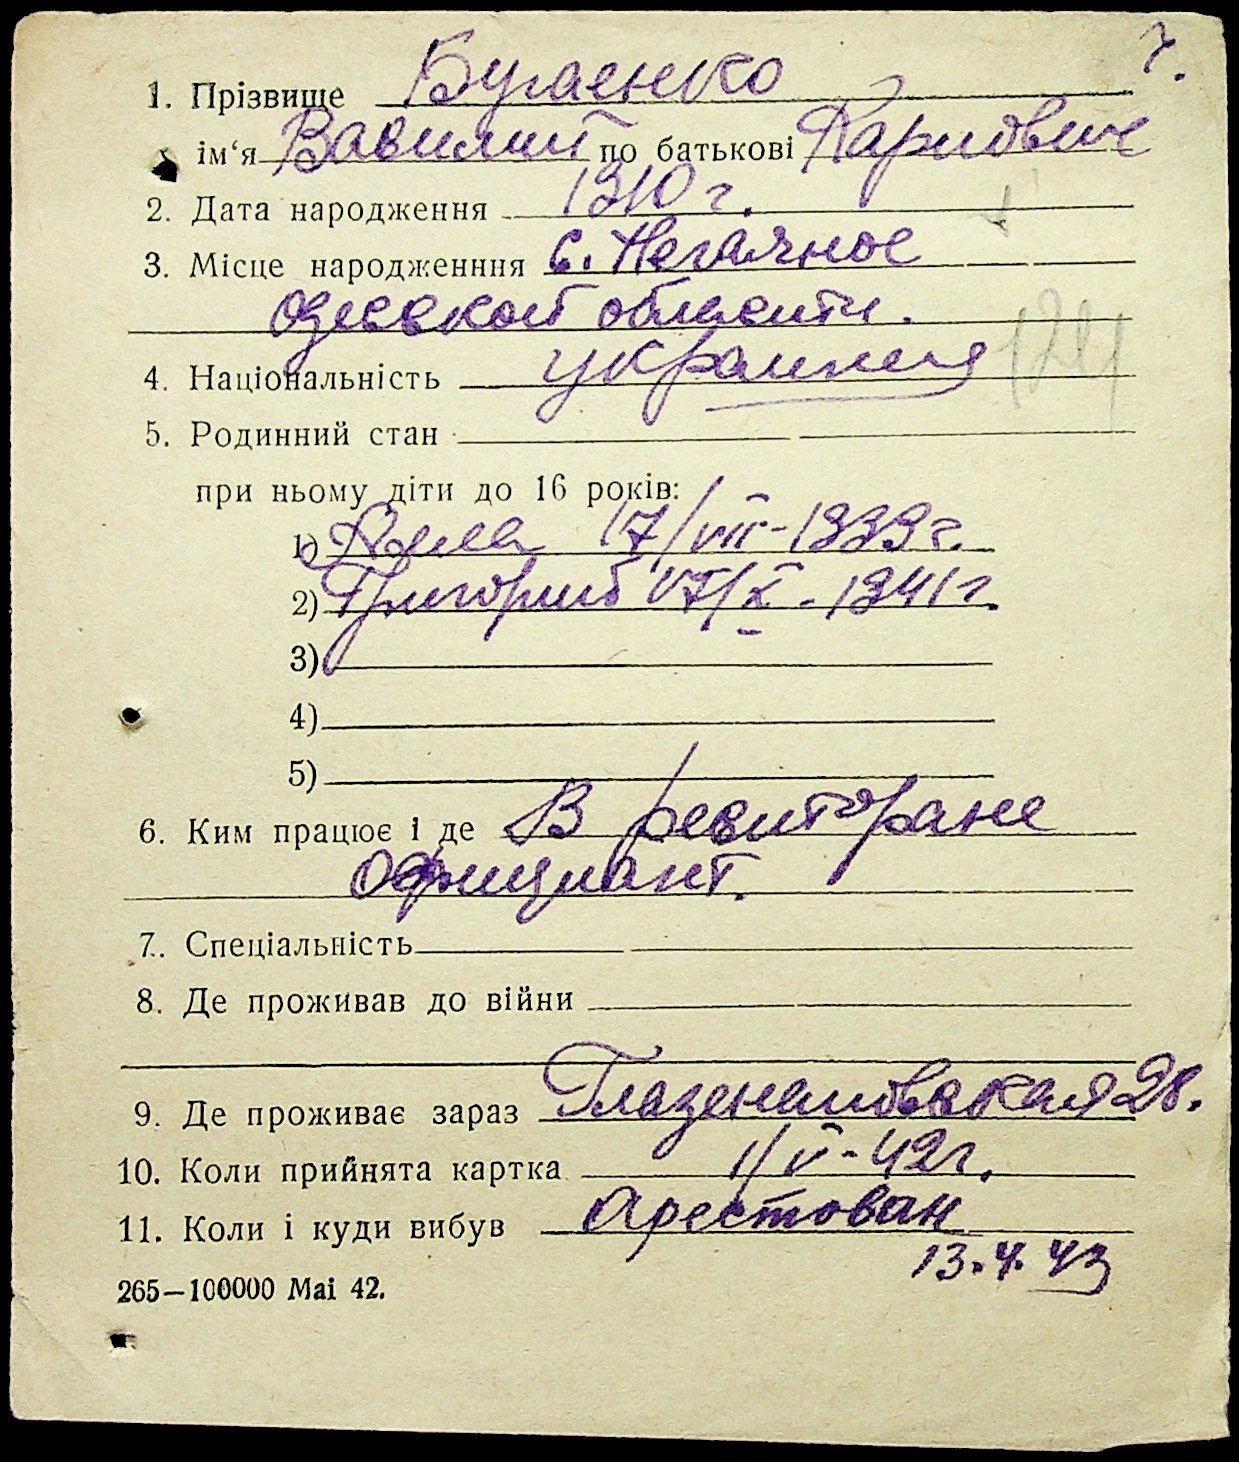 7.
1. Прізвище Бугаенко
ім‘я Василий по батькові Карпович
2. Дата народження 1910 г.
3. Місце народженння с. Негаячное
одесской области.
4. Національність украинец
5. Родинний стан
при ньому діти до 16 років:
1) Алла 17/VII-1939 г.
2) Григорий 17/X - 1941 г.
3)
4)
5)
6. Ким працює і де В ресторане
официант.
7. Спеціальність
8. Де проживав до війни
9. Де проживає зараз Глазенаповская 28.
10. Коли прийнята картка 1/V-42 г.
11. Коли і куди вибув Арестован
13.4.43
265—100000 Маі 42.